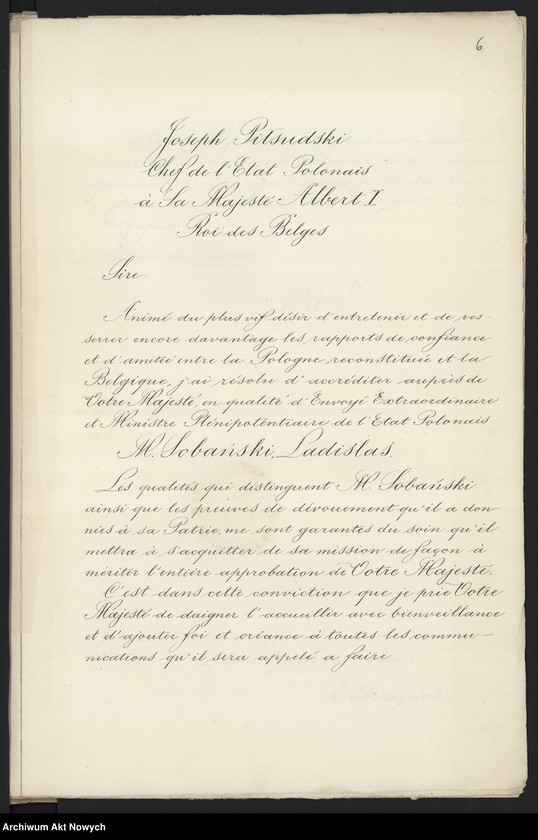 6
Joseph Pitsudski
Chef de l'Etat Polonais
à Sa Majesté Albert I
Roi des Belges
Sire
Animé du plus vif désir d'entretenir et de res-
serrer encore davantage les rapports de confiance
et d'amitée entre la Pologne reconstituée et la
Belgique, j'ai résolu d'accréditer auprès de
Votre Majesté, en qualité d'Envoyé Extraordinaire
et Ministre Plénipotentiaire de l'Etat Polonais
M. Sobański, Ladislas.
Les qualités qui distinguent M. Sobański
ainsi que les preuves de dévouement qu'il a don
nées à sa Patrie, me sont garantes du soin qu'il
mettra à s'acquitter de sa mission de façon à
mériter l'entière approbation de Votre Majesté.
C'est dans cette conviction que je prie Votre
Majesté de daigner l'accueillir avec bienveillance
et d'ajouter foi et créance à toutes les commu-
nications qu'il sera appelé a faire
Archiwum Akt Nowych